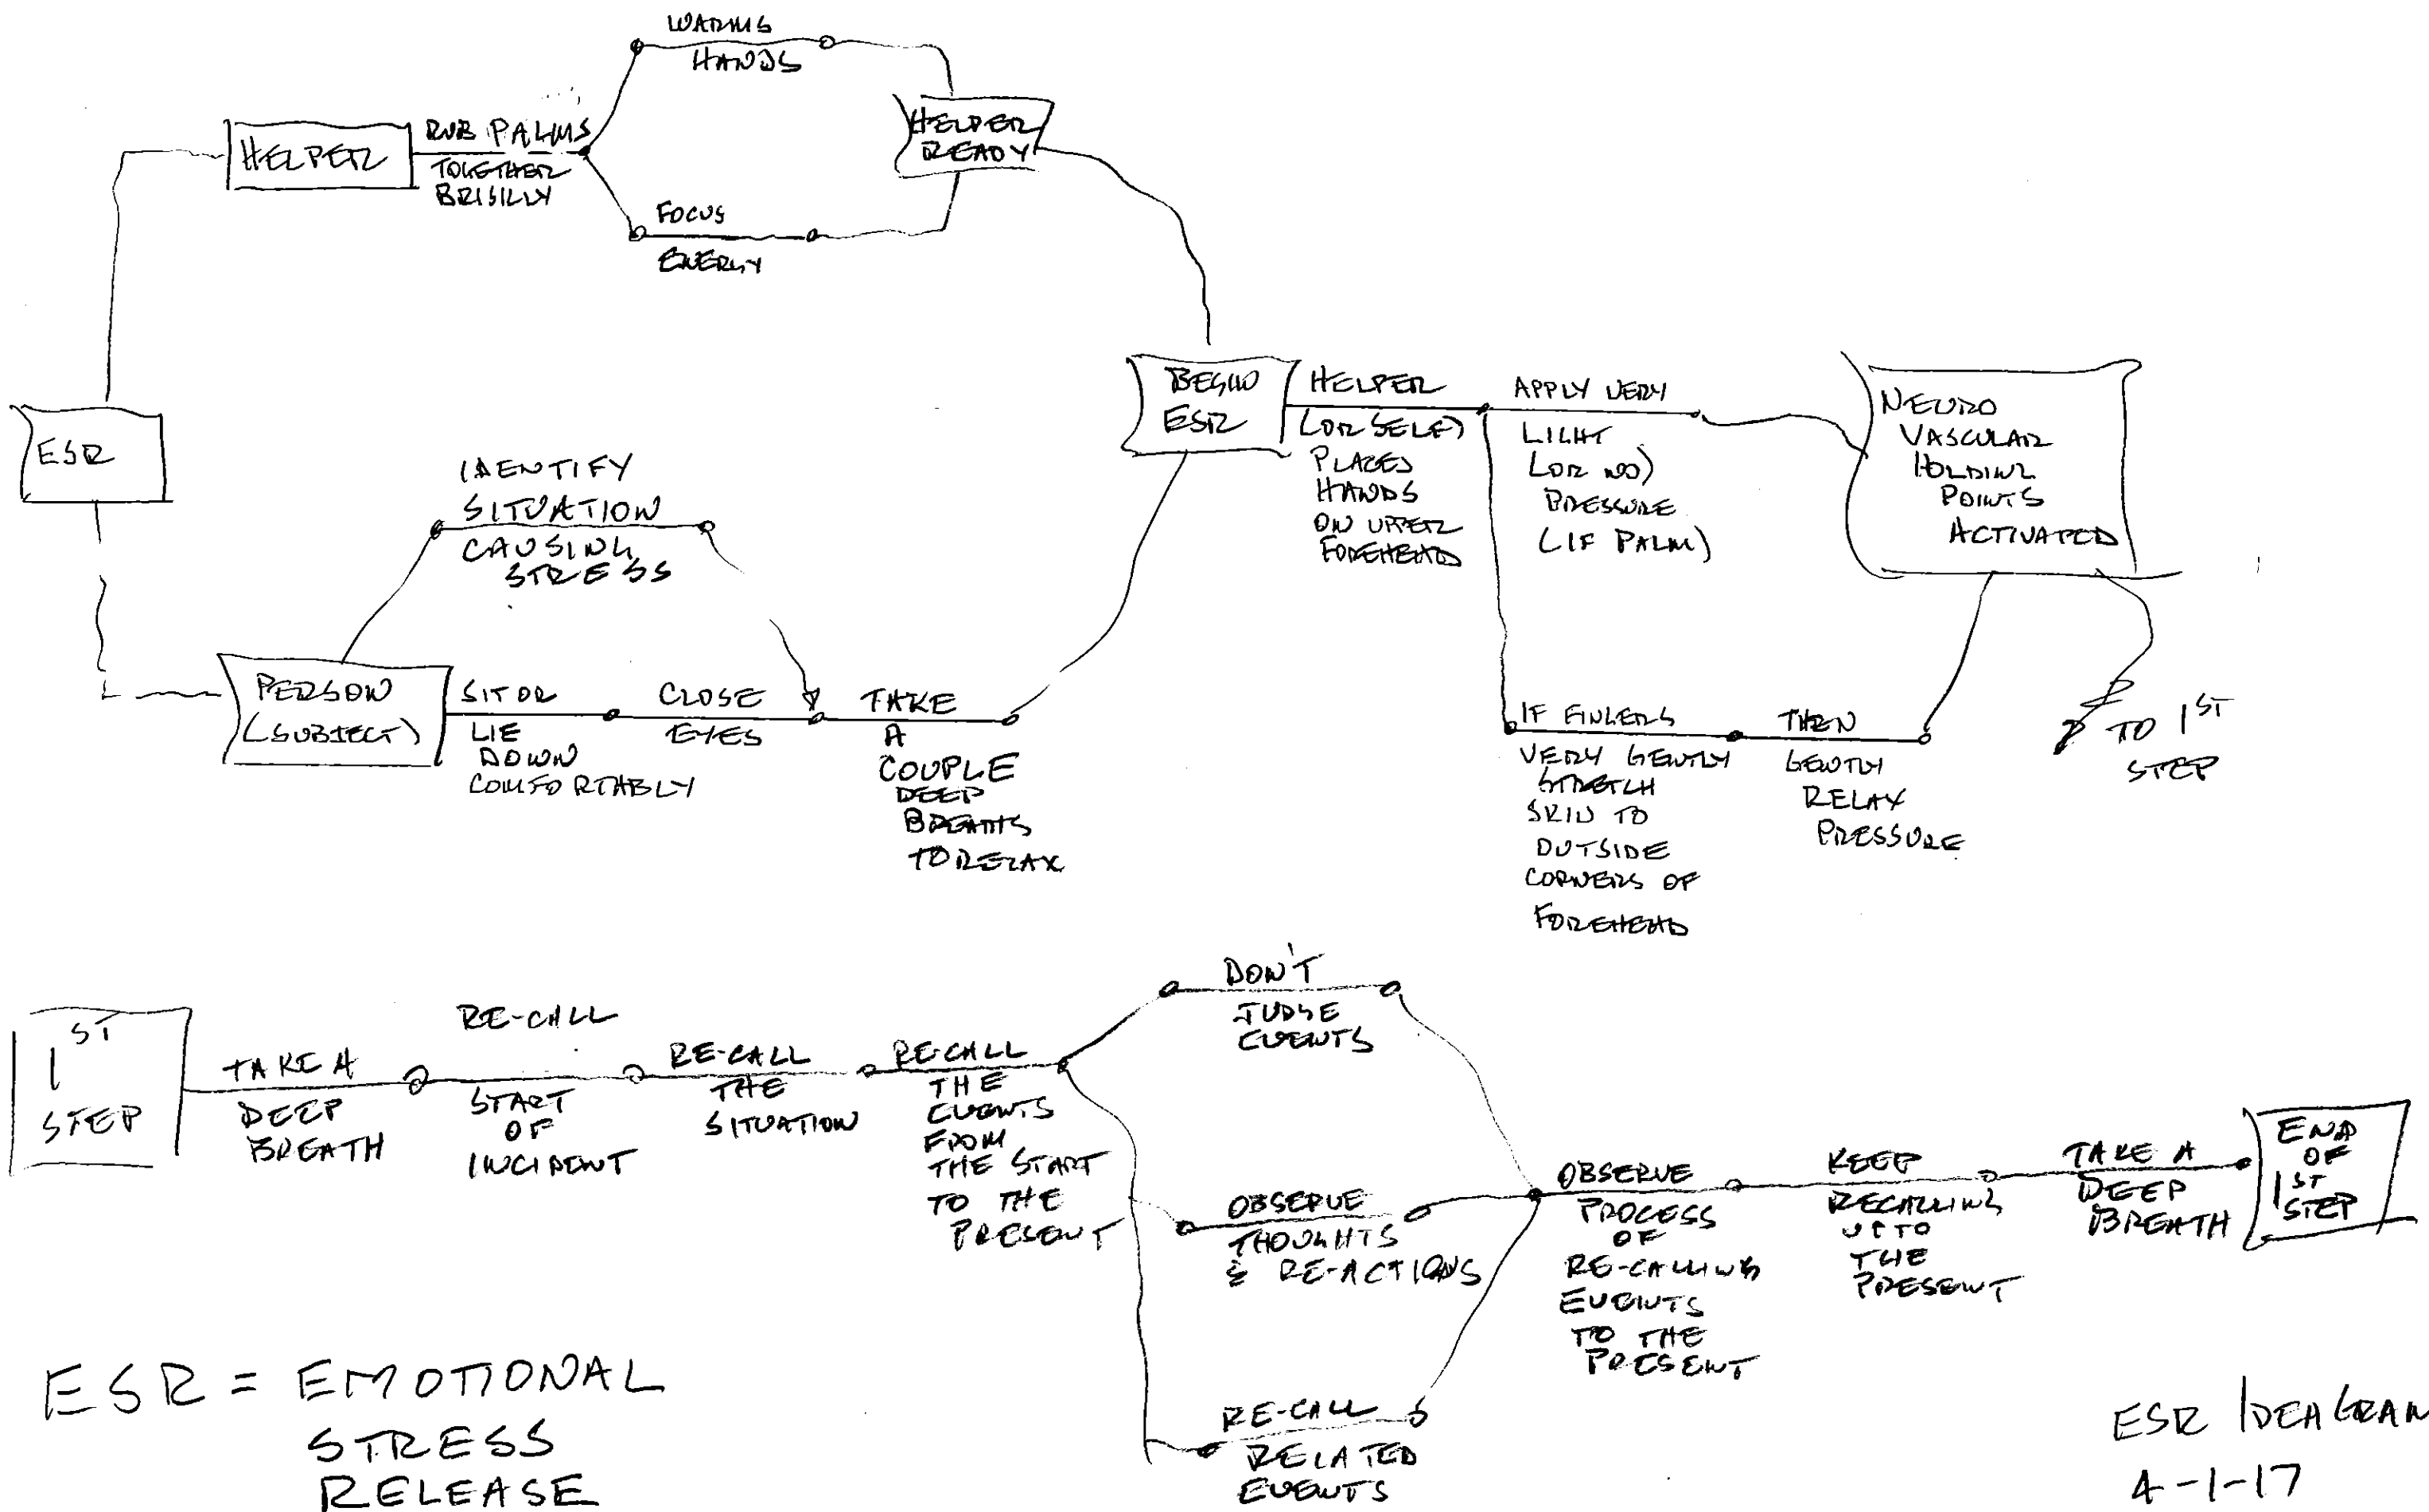 WARMS
HANDS
HELPER
RUB PALMS
TOGETHER
BRISILLY
HELPER
READY
FOCUS
ENERGY
ESR
IDENTIFY
SITUATION
CAUSING
STRESS
PERSON
(SUBJECT)
SIT OR
LIE
DOWN
COMFORTABLY
CLOSE
EYES
TAKE
A
COUPLE
DEEP
BREATHS
TO RELAX
BEGIN
ESR
HELPER
(OR SELF)
PLACES
HANDS
ON UPPER
FOREHEAD
APPLY VERY
LIGHT
(OR NO)
PRESSURE
(IF PALM)
NEURO
VASCULAR
HOLDING
POINTS
ACTIVATED
IF FINGERS
VERY GENTLY
STRETCH
SKIN TO
OUTSIDE
CORNERS OF
FOREHEAD
THEN
GENTLY
RELAX
PRESSURE
TO 1ST
STEP
1ST
STEP
TAKE A
DEEP
BREATH
RE-CALL
START
OF
INCIDENT
RE-CALL
THE
SITUATION
RE-CALL
THE
EVENTS
FROM
THE START
TO THE
PRESENT
DON'T
JUDGE
EVENTS
OBSERVE
THOUGHTS
& RE-ACTIONS
RE-CALL
RELATED
EVENTS
OBSERVE
PROCESS
OF
RE-CALLING
EVENTS
TO THE
PRESENT
KEEP
RECALLING
UP TO
THE
PRESENT
TAKE A
DEEP
BREATH
END
OF
1ST
STEP
ESR = EMOTIONAL
STRESS
RELEASE
ESR IDEAGRAM
4-1-17